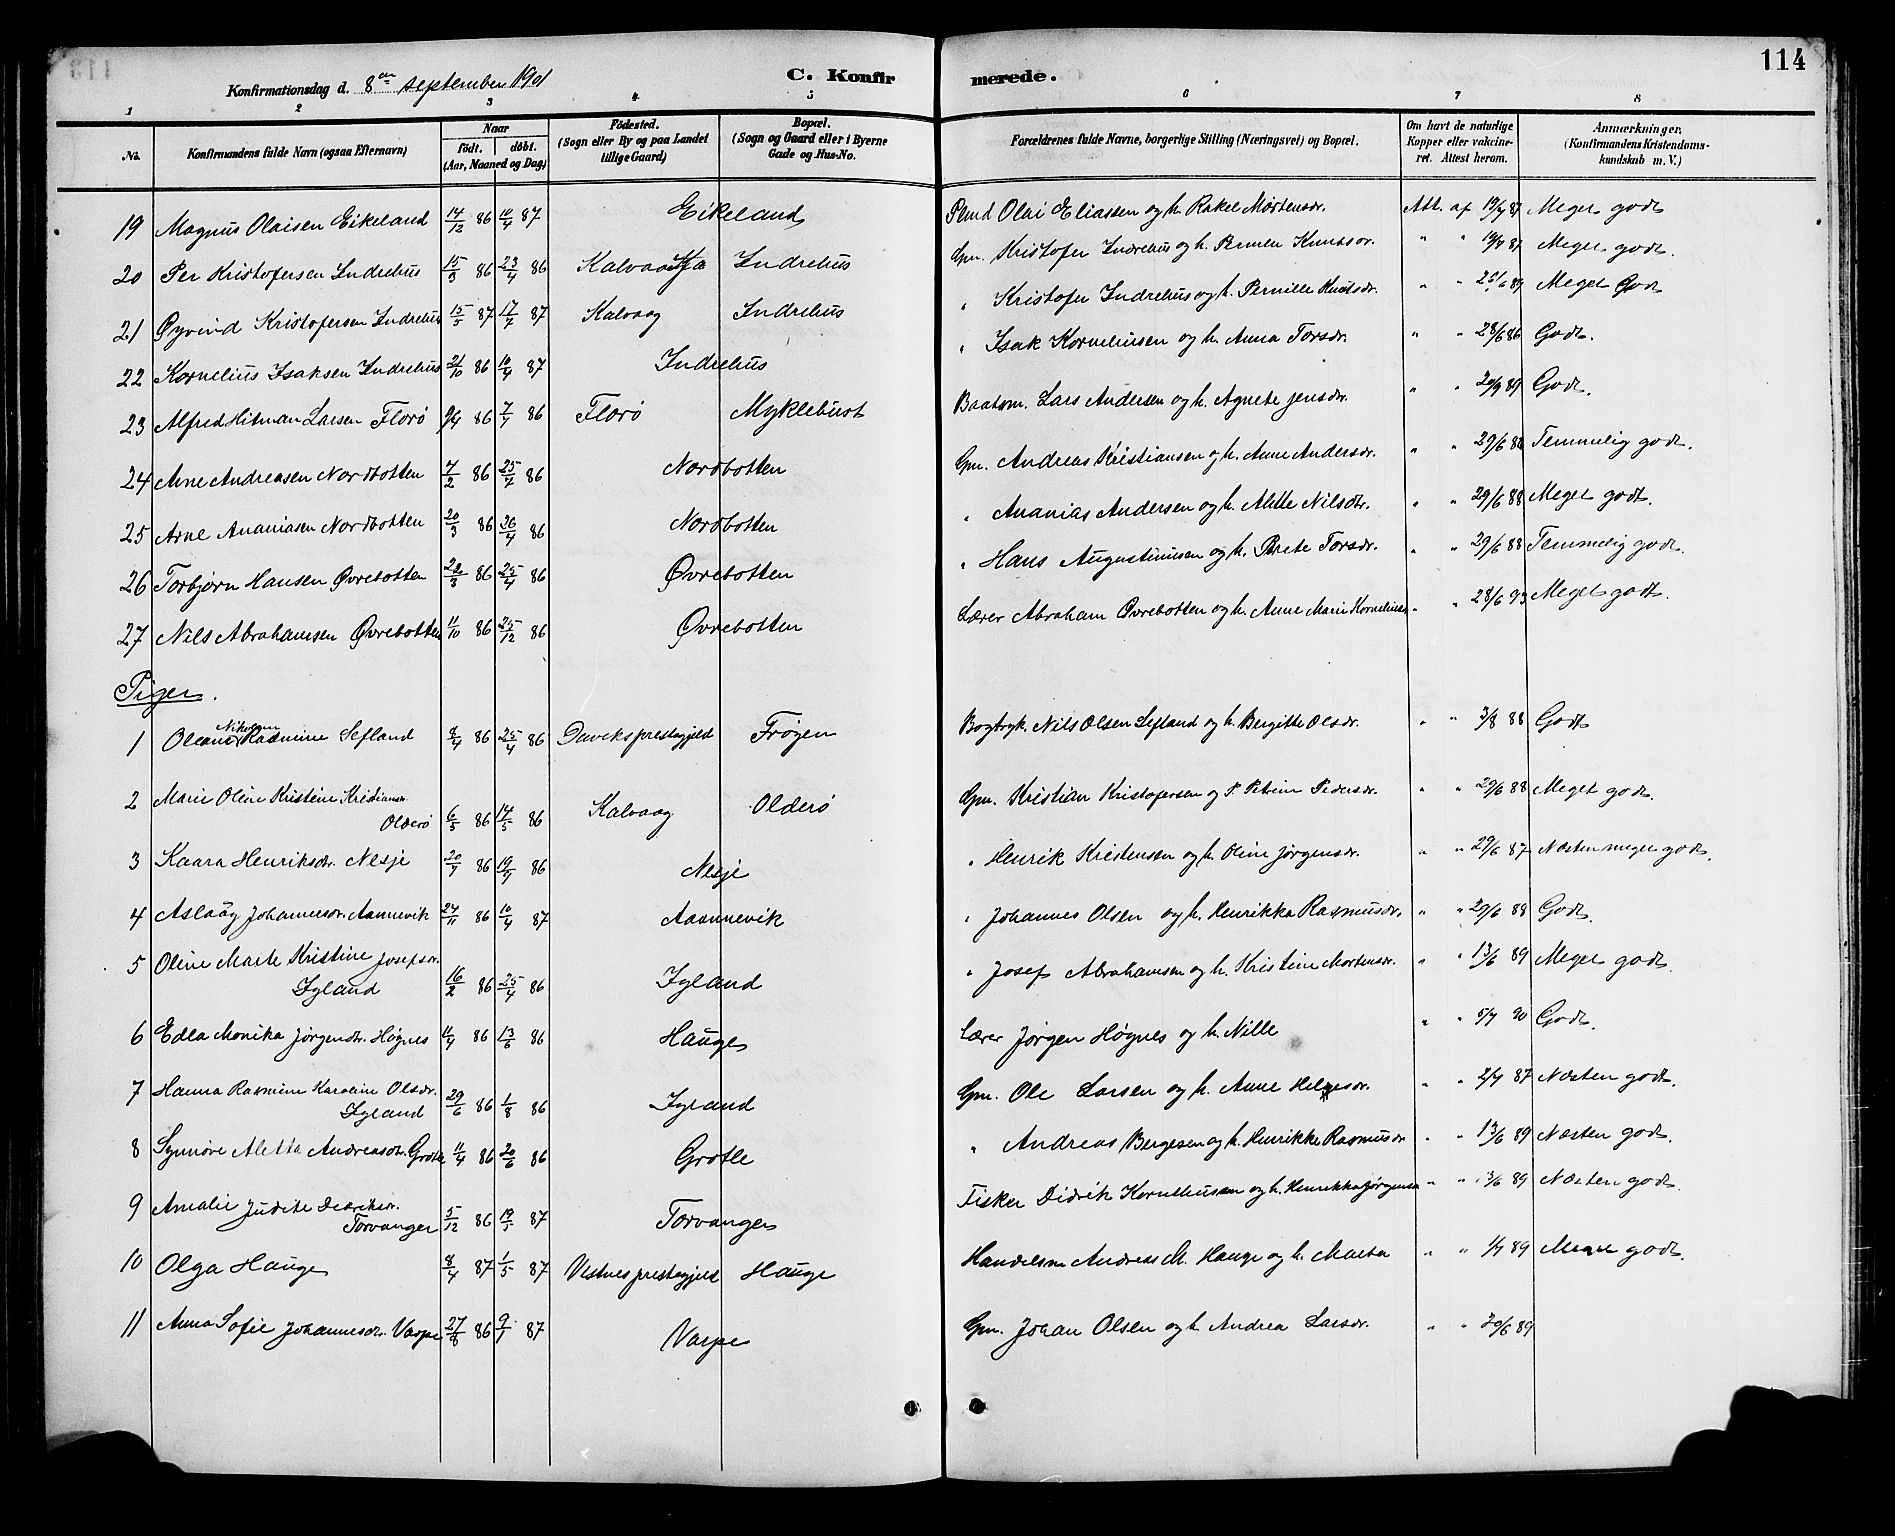 114
C. Konfirmerede.
Konfirmationsdag d. 8de september 1901
1 2 3 4 5 6 7 8
No. Konfirmandens fulde Navn (ogsaa Efternavn) Naar født. døbt. (Aar, Maaned og Dag) Fødested. (Sogn eller By og paa Landet tillige Gaard) Bopæl. (Sogn og Gaard eller i Byerne Gade og Hus-No. Forældrenes fulde Navne, borgerlige Stilling (Næringsvei) og Bopæl. Om havt de naturlige Kopper eller vakcineret. Attest herom. Anmærkninger. (Konfirmandens Kristendomskundskab m. V.)
19 Magnus Olaisen Eikeland 14/12 86 10/4 87 Eikeland Olai Eliassen og h. Rakel Mortensdr. Att. af 19/7 87 Meget godt
20 Per Kristofersen Indrehus 15/3 86 23/4 86 Kalvaag Indrehus Gm. Kristofer Indrehus og h. Knutsdr. " " 87 Meget godt.
21 Øyvind Kristofersen Indrehus 15/5 87 17/7 87 Kalvaag Indrehus " Kristofer Indrehus og h. Pernille Knutsdr. " " 89 Meget Godt
22 Kornelius Isaksen Indrehus 21/10 86 10/4 87 Indrehus " Isak Korneliusen og h. Anna Torsdr. " " 28/6 86 Godt.
23 Alfred Hitman Larsen Florø 86 7/4 86 Florø Myklebust Baatsm. Lars Andersen og h. Agnete Jensdr. " " 20/9 89 Godt.
24 Arne Andreasen Nordbotten 7/2 86 25/4 86 Nordbotten Gm. Andreas Kristiansen og h. Anne Andersdr. " " 29/6 88 Temmelig godt.
25 Arne Ananiasen Nordbotten 20/3 86 26/4 86 Nordbotten " Ananias Andersen og h. Nilsdtr. " " 29/6 88 Meget godt.
26 Torbjørn Hansen Øvrebotten 22/3 86 25/4 86 Øvrebotten " Hans Augustinusen og h. Torsdr. " " 29/6 88 Temmelig godt.
27 Nils Abrahamsen Øvrebotten 11/10 86 25/12 86 Øvrebotten Lærer Abraham Øvrebotten og h. Anne Marie " " 28/6 93 Meget godt.
Piger.
1 Oleane Rasmine Sefland 8/4 86 25/4 86 Daviksprestegjeld Frøyen Bogtryk. Nils Olsen Sefland og h. Bergitte Olsdr. " " 3/8 88 Godt
2 Marie Oline Kristine Kristiansdr.
Olderø 6/5 86 14/5 86 Kalvaag Olderø Gm. Kristian Kristofersen og P. Petrine Pedersdr. " " 29/6 88 Meget godt.
3 Kaara Henriksdr. Nesje 86 86 Nesje " Henrik Kristensen og h. Oline Jørgensdr. " " 29/6 87 Næsten meget godt.
4 Aslaug Johannesdr. Aannevik 24/11 86 10/4 87 Aannevik " Johannes Olsen og h. Henrikka Rasmusdr. " " 29/6 88 Godt.
5 Oline Marte Kristine Josefsdr.
Igland 16/2 86 25/4 86 Igland " Josef Abrahamsen og h. Kristine Mortensdr. " " 13/6 89 Meget godt.
6 Edla Monika Jørgensdr. Høgnes 11/4 86 13/6 86 Hauge Lærer Jørgen Høgnes og h. Nille " " 5/7 90 Godt.
7 Hanna Rasmine Karoline Olsdr.
Igland 29/6 86 1/8 86 Igland Gm. Ole Larsen og h. Anne " " 2/7 87 Næsten godt.
8 Synnøve Aletta Andreasdtr. Grotle 11/4 86 20/6 86 Grotle " Andreas Bergesen og h. Henrikke Rasmusdr " " 13/6 89 Næsten godt.
9 Amalie Judite Didriksdr.
Torvanger 5/12 86 19/5 87 Torvanger Fisker Didrik Korneliusen og h. Henrikka Jørgensdr " " 13/6 89 Næsten godt.
10 Olga Hauge 8/4 87 1/5 87 Vestnes prestegjeld Hauge Handelsm Andreas M. Hauge og h. Marta " " 1/7 89 Meget godt.
11 Anna Sofie Johannesdr. Varpe 27/8 86 9/1 87 Varpe Gm. Johan Olsen og h. Andrea Larsdr. " " 89